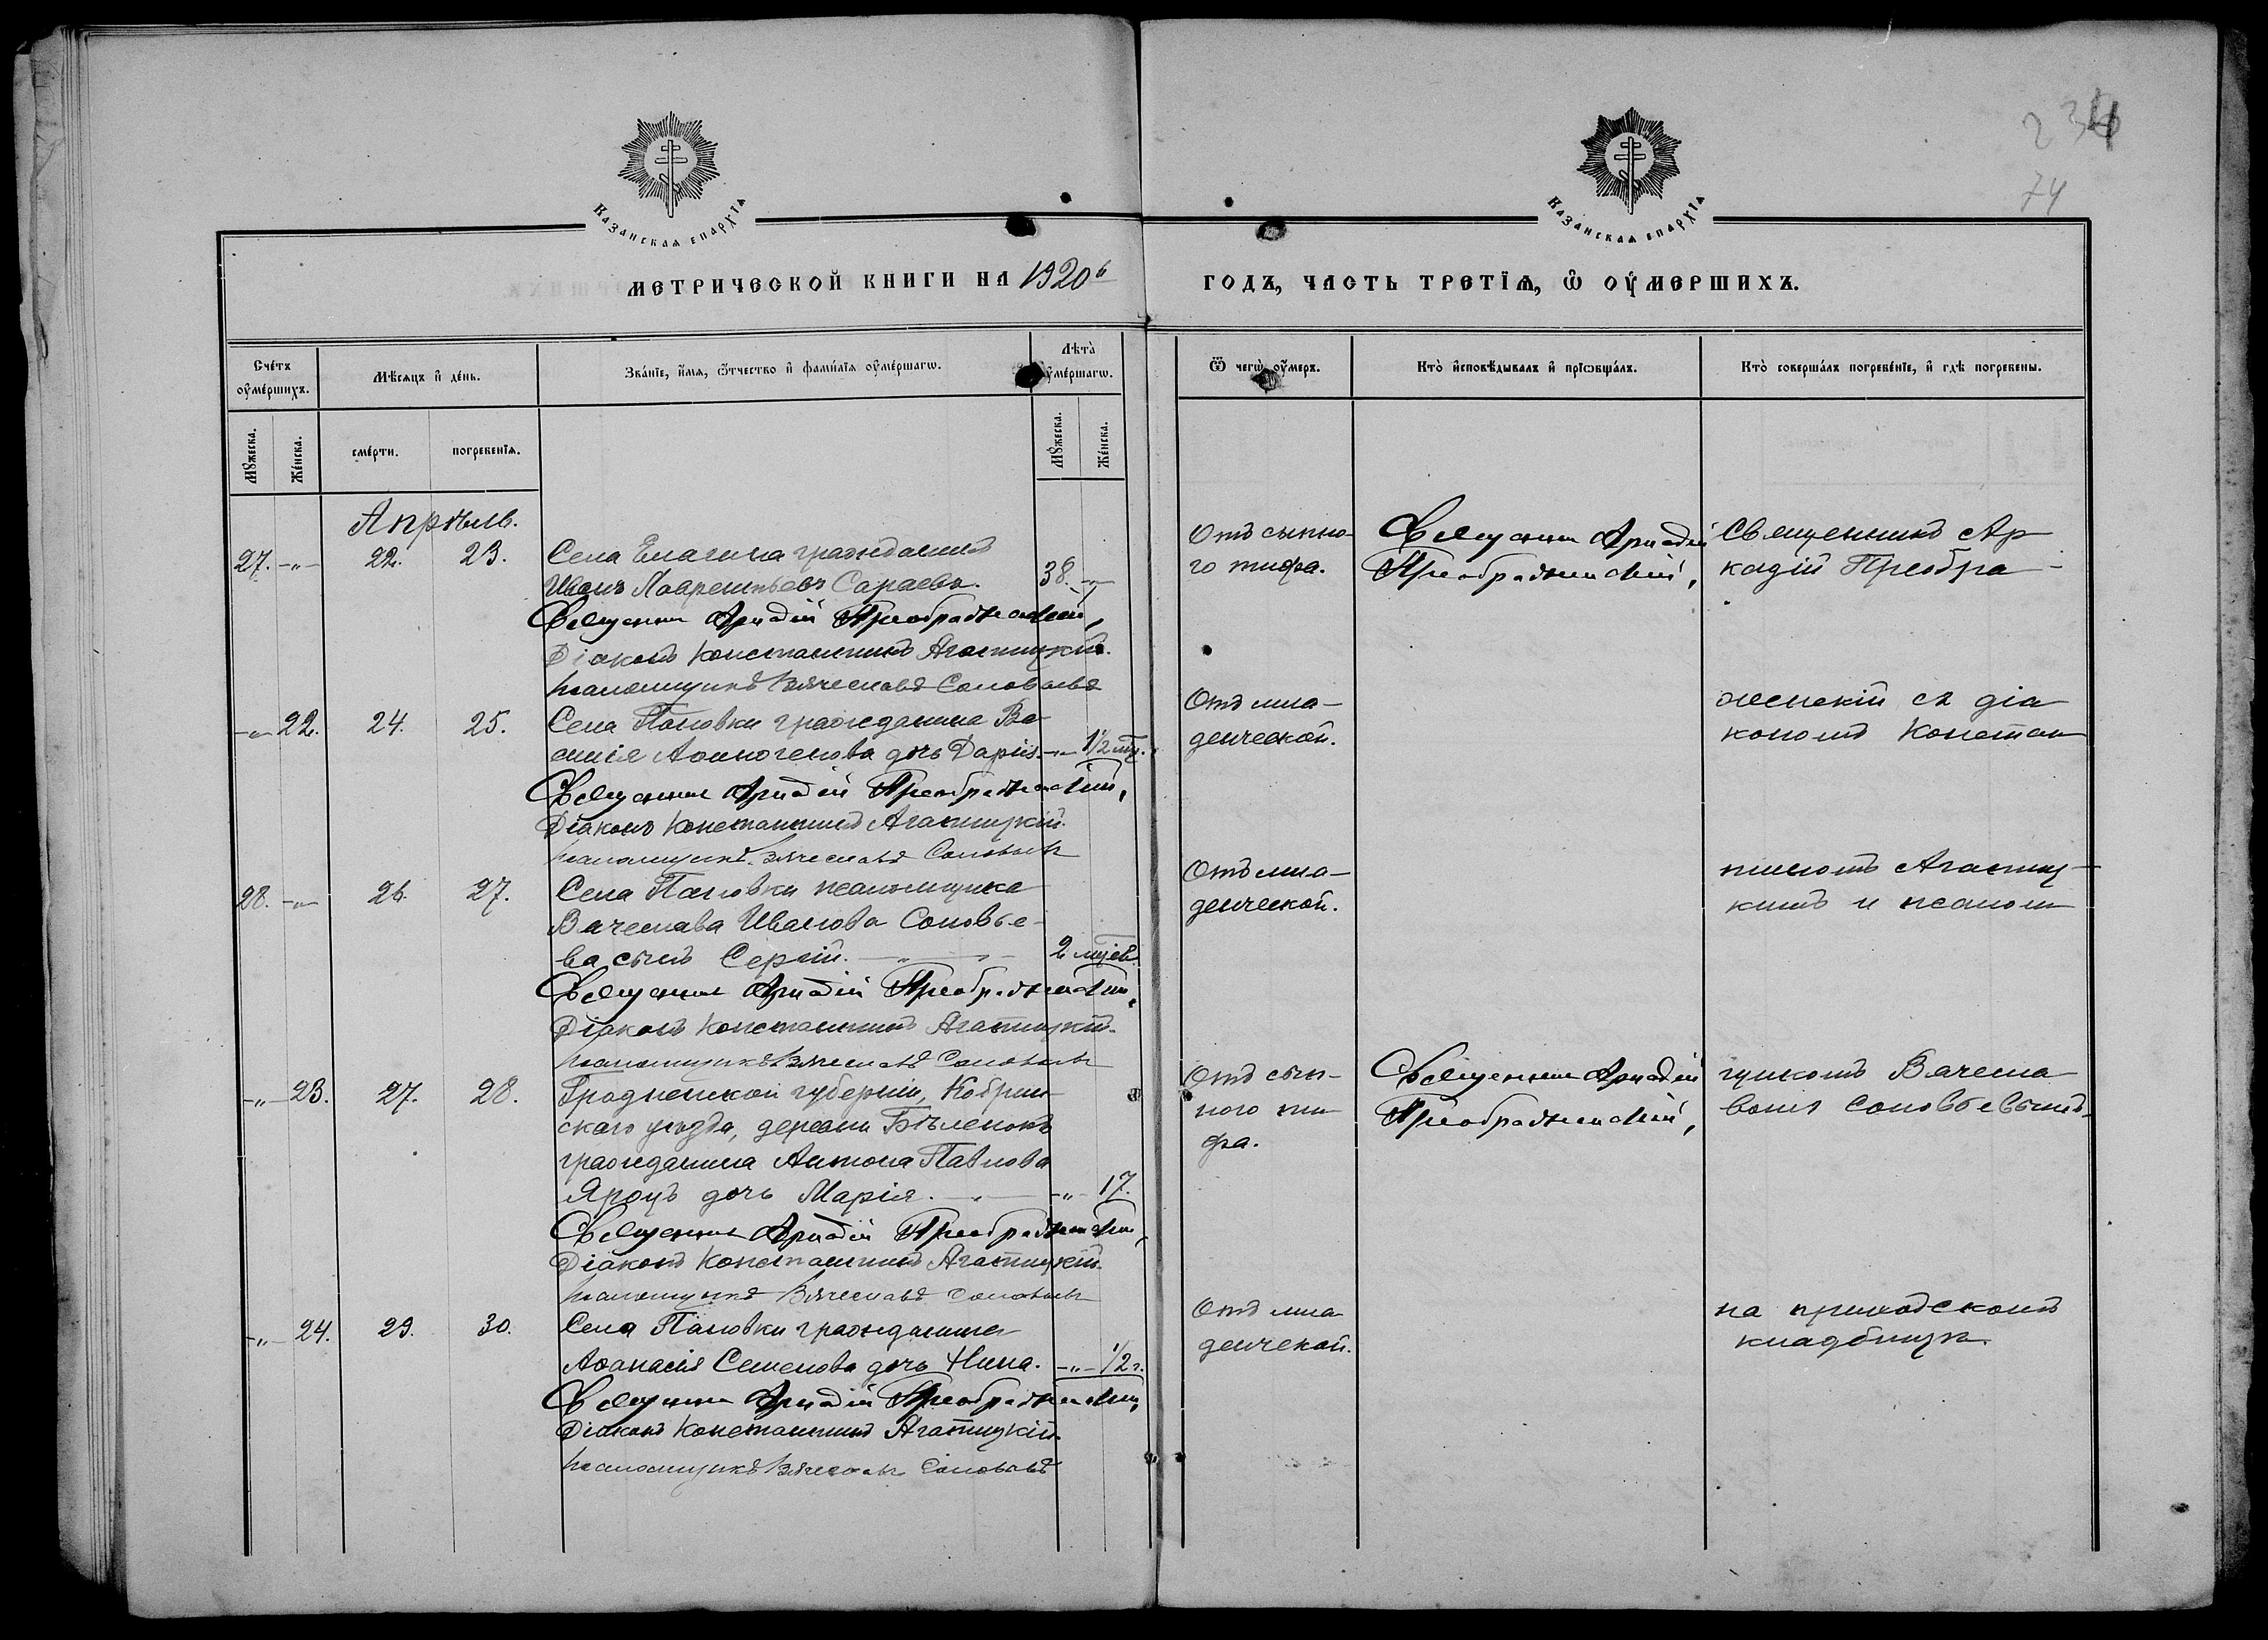 234
74
Казанская епархїѧ
Казанская епархїѧ
МЕТРИЧЕСКОЙ КНИГИ НА 1920й
ГОДЪ, ЧАСТЬ ТРЕТЇѦ, Ѿ ОУМЕРШИХЪ.
Сче́тъ оумершихъ.
Мѣсяцъ и день.
Зва́нїе, и́мя, ѻ҆тчество и҆ фами́лїя оуме́ршагѡ.
Лѣта̀ оумершагѡ.
Ѿ чегѡ̀ оумеръ.
Кто̀ и҆сповѣ́дывалъ и҆ прїѡбща́лъ.
Кто̀ соверша́лъ погребе́нїе, и҆ гдѣ погребены.
Мꙋжеска.
Женска.
сме́рти.
погребенїѧ.
Мꙋжеска.
Же́нска.
Апрѣль.
27. -„- 22. 23.
Села Елагина гражданинъ
Иванъ Лаврентьевъ Сараевъ. 38. -„-
Священникъ Аркадій Преображенскій,
Діаконъ Константинъ Агатицкій.
Псаломщикъ Вячеславъ Соловьевъ
Отъ сыпно-
го тифа.
Священникъ Аркадій
Преображенскій,
Священникъ Ар-
кадій Преобра-
-„- 22. 24. 25.
Села Пановки гражданина Ва-
силія Аѳиногенова дочь Дарія. -„- 1 1/2 мц.
Священникъ Аркадій Преображенскій,
Діаконъ Константинъ Агатицкій.
Псаломщикъ Вячеславъ Соловьевъ
Отъ мла-
денческой.
женскій съ діа
кономъ Констан
28. -„- 26. 27.
Села Пановки псаломщика
Вячеслава Иванова Соловье-
ва сынъ Сергій. -„- 2 мцев.
Священникъ Аркадій Преображенскій,
Діаконъ Константинъ Агатицкій.
Псаломщикъ Вячеславъ Соловьевъ
Отъ мла-
денческой.
тиномъ Агатиц-
кимъ и псалом
-„- 23. 27. 28.
Гродненской губерніи, Кобрин-
скаго уѣзда, деревни Бѣленокъ
гражданина Антона Павлова
Яроцъ дочь Марія. -„- -„- 17.
Священникъ Аркадій Преображенскій,
Діаконъ Константинъ Агатицкій.
Псаломщикъ Вячеславъ Соловьевъ
Отъ сып-
ного ти-
фа.
Священникъ Аркадій
Преображенскій,
щикомъ Вячесла
вомъ Соловьевымъ
-„- 24. 29. 30.
Села Пановки гражданина
Аѳанасія Семенова дочь Нина. -„- 1/2 г.
Священникъ Аркадій Преображенскій,
Діаконъ Константинъ Агатицкій.
Псаломщикъ Вячеславъ Соловьевъ
Отъ мла
денческой.
на приходскомъ
кладбищѣ.